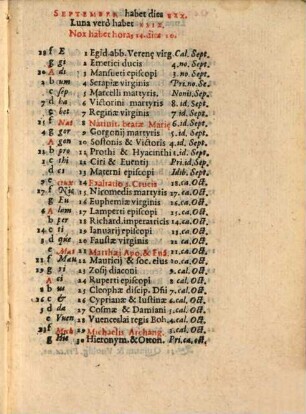 SEPTEMBER. habet dies xxx.
Luna verò habet xxix.
Nox habet horas 12. dies 12.
f E 1 Egid. abb. Verenę virg. Cal. Sept.
g gi 2 Emerici ducis 4. no. Sept.
A di 3 Mansueti episcopi 3. no. Sept.
b um 4 Serapiæ virginis Pri. no. Se.
c sep 5 Marcelli martyris. Nonis Sept.
d ha 6 Victorini martyris 8. id. Sept.
e bet 7 Reginæ virginis 7. id. Sept.
f Nat 8 Nativit. beatæ Marię 6. id. Sept.
g ger 9 Gorgonij martyris 5. id. Sept.
A gon 10 Sosthenis & Victoris 4. id. Sept.
b pro 11 Prothi & Hyacinthi 3. id. Sept.
c thi 12 Ciri & Euentij Pri. id. Sep.
d ci 13 Materni episcopi Idib. Sept.
e crux 14 Exaltatio S. Crucis 18. ca. Oct.
f Nic 15 Nicomedis martyris 17. ca. Oct.
g Eu 16 Euphemiæ virginis 16. ca. Oct.
A lam 17 Lamperti episcopi 15. ca. Oct.
b per 18 Richard. imperatricis 14. ca. Oct.
c ti 19 Ianuarij episcopi 13. ca. Oct.
d que 20 Faustæ virginis 12. ca. Oct.
e Mat 21 Matthæi Apo. & Euā. 11. ca. Oct.
f Mau 22 Mauricij & soc. eius 10. ca. Oct.
g ri 23 Zosij diaconi 9. cal. Oct.
A ci 24 Ruperti episcopi 8. cal. Oct.
b us 25 Cleophæ discip. Dñi 7. cal. Oct.
c & 26 Cyprianæ & Iustinæ 6. cal. Oct.
d da 27 Cosmæ & Damiani 5. cal. Oct.
e Vuen 28 Vuenceslai regis Boh. 4. cal. Oct.
f Mich 29 Michaelis Archang. 3. cal. Oct.
g Hie 30 Hieronym. & Otton. Pri. ca. oct.